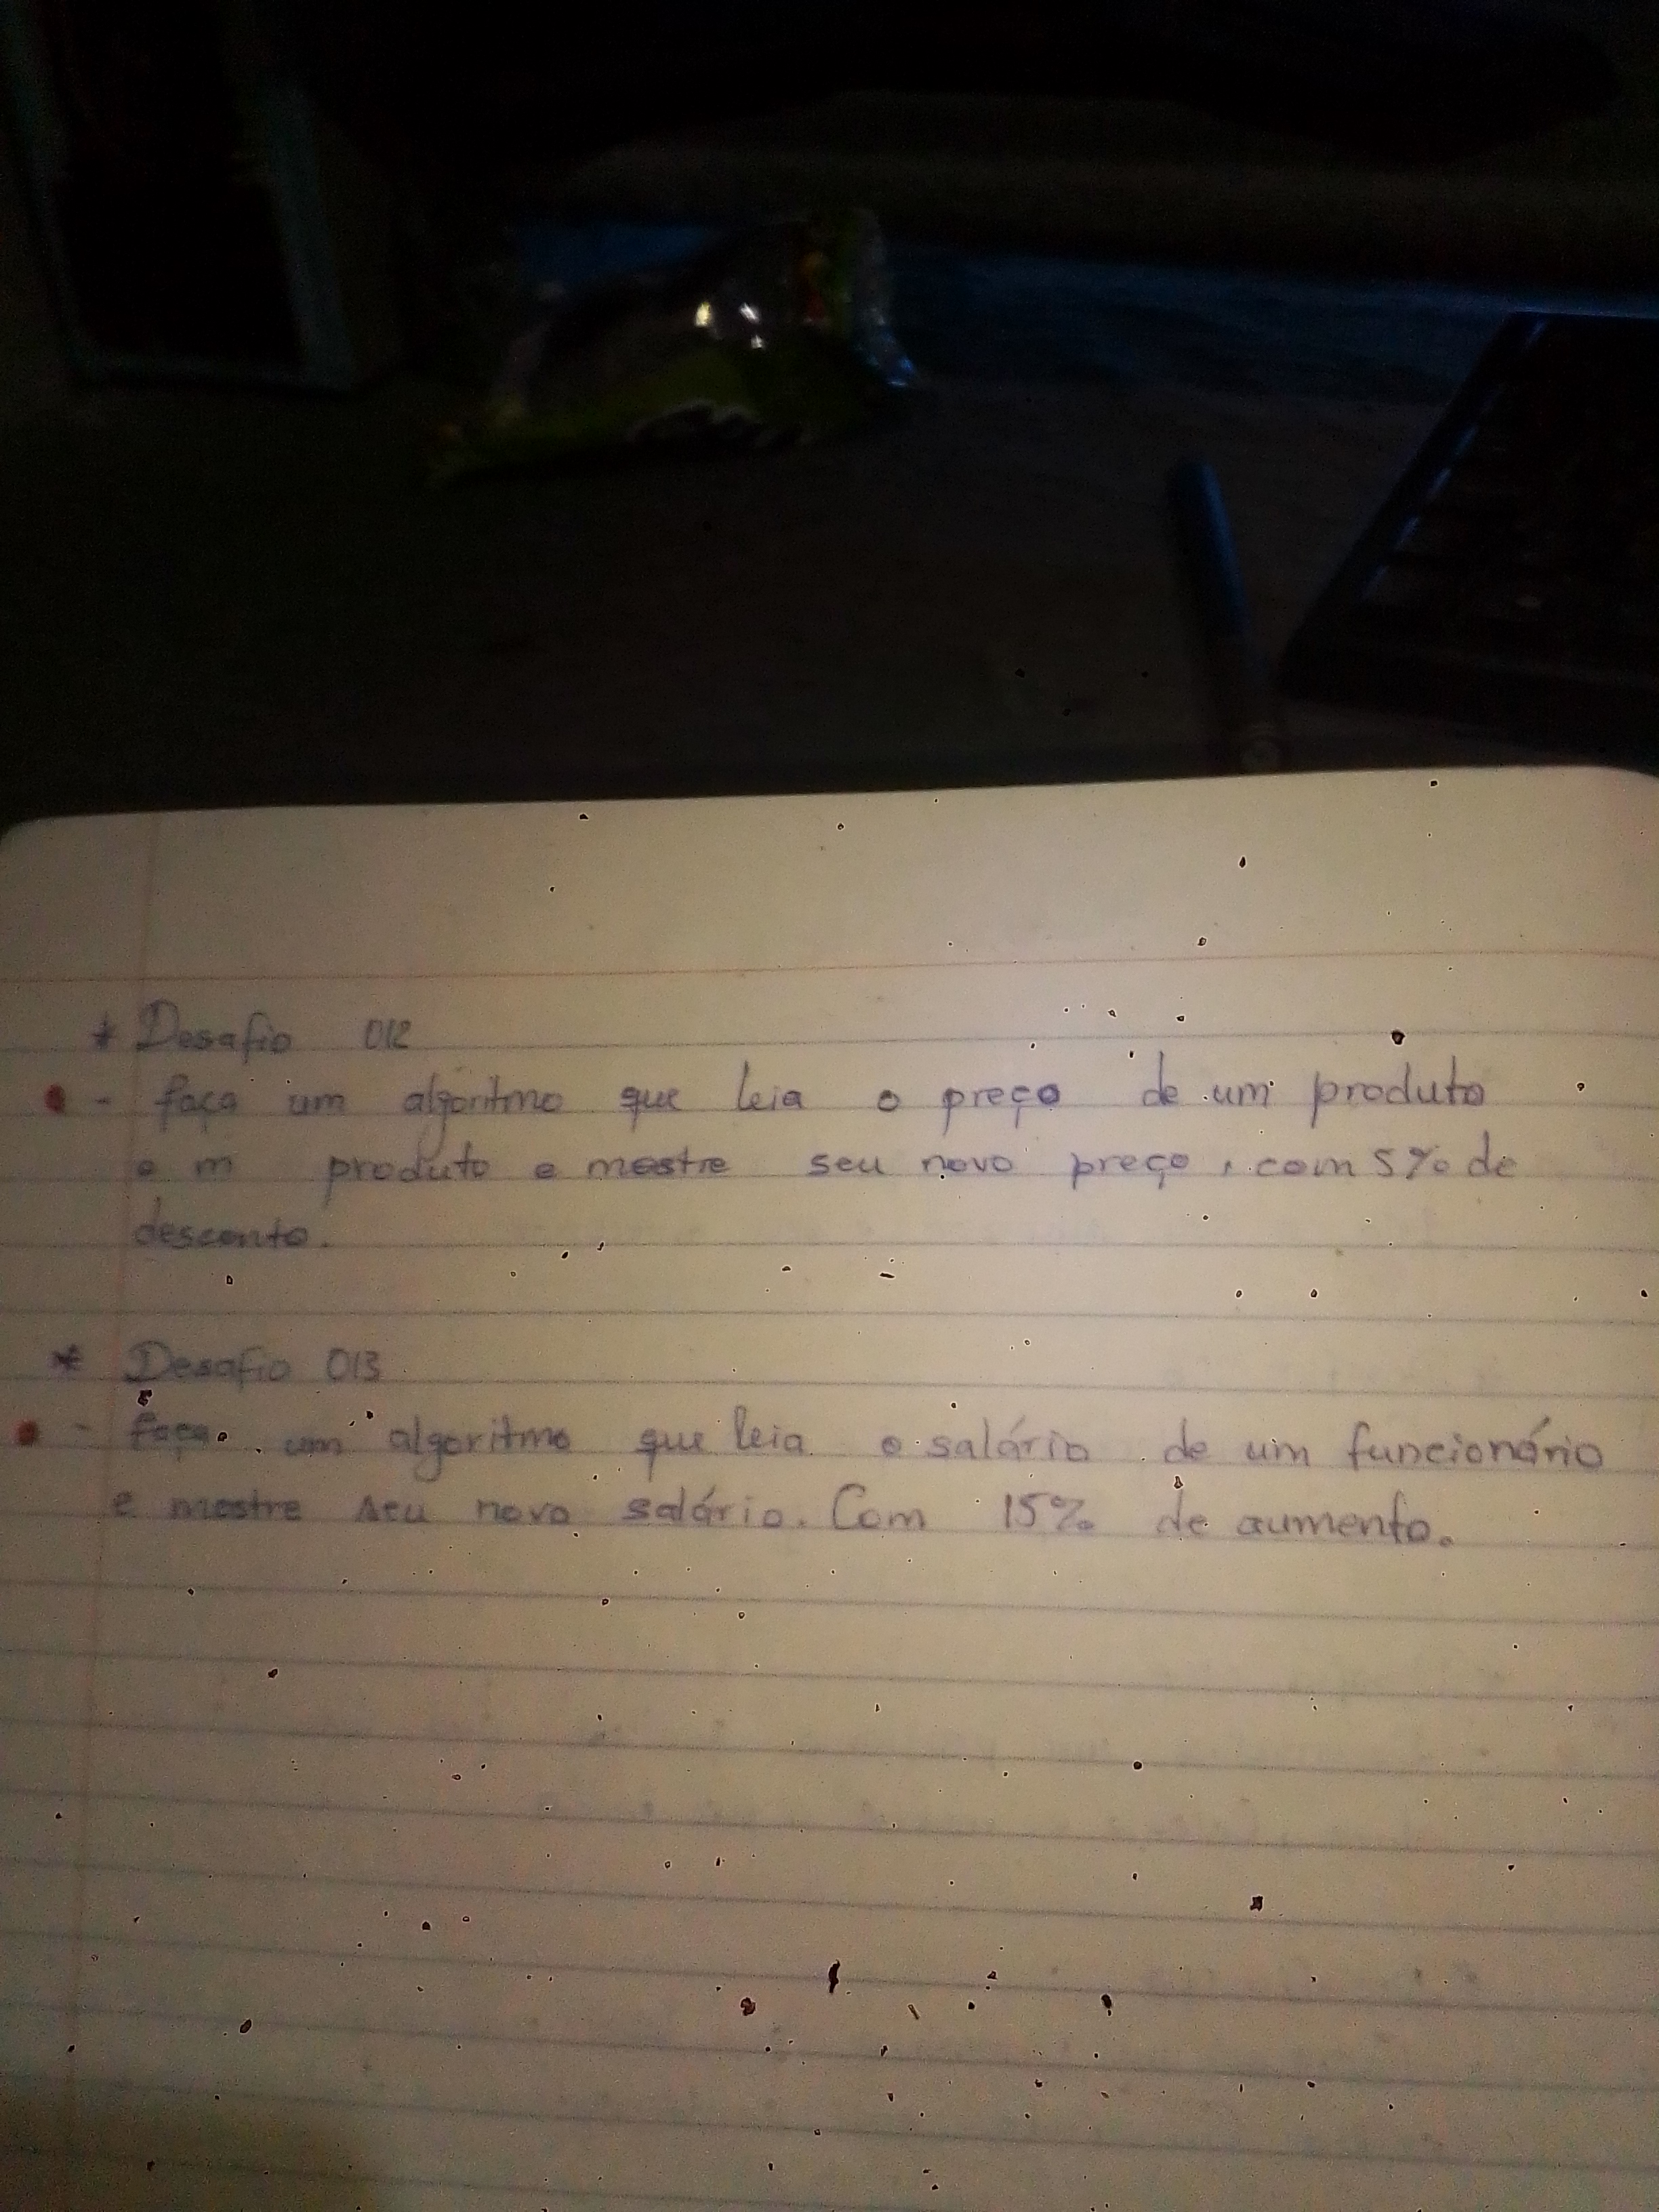 * Desafio 012
- faça um algoritmo que leia o preço de um produto
e m produto e mostre seu novo preço, com 5% de
desconto.
* Desafio 013
- faça um algoritmo que leia o salário de um funcionário
e mostre seu novo salário. Com 15% de aumento.